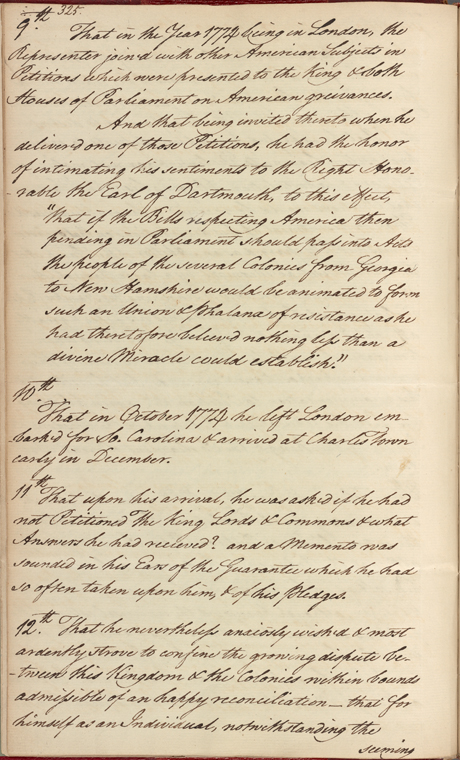 325.
9.th That in the Year 1774 being in London, the
Representer join'd with other American Subjects in
Petitions which were presented to the King & both
Houses of Parliament on American greivances.
And that being invited thereto when he
deliver'd one of those Petitions, he had the honor
of intimating his sentiments to the Right Hono-
-rable the Earl of Dartmouth, to this effect,
"that if the Bills respecting America then
pending in Parliament should pass into Acts
the people of the several Colonies from Georgia
to New Hamshire would be animated to form
such an Union & Phalanx of resistance as he
had theretofore believ'd nothing less than a
divine Miracle could establish."
10.th
That in October 1774 he left London em
bark'd for So. Carolina & arrived at Charles Town
early in December.
11th That upon his arrival, he was asked if he had
not Petitioned The King Lords & Commons & what
Answers he had recieved? and a Memento was
sounded in his Ears of the Guarantie which he had
so often taken upon him, & of his Pledges.
12.th That he nevertheless anxiously wish'd & most
ardently strove to confine the growing dispute be-
-tween this Kingdom & the Colonies within bounds
admissible of an happy reconciliation — that for
himself as an Individual, notwithstanding the
seeming